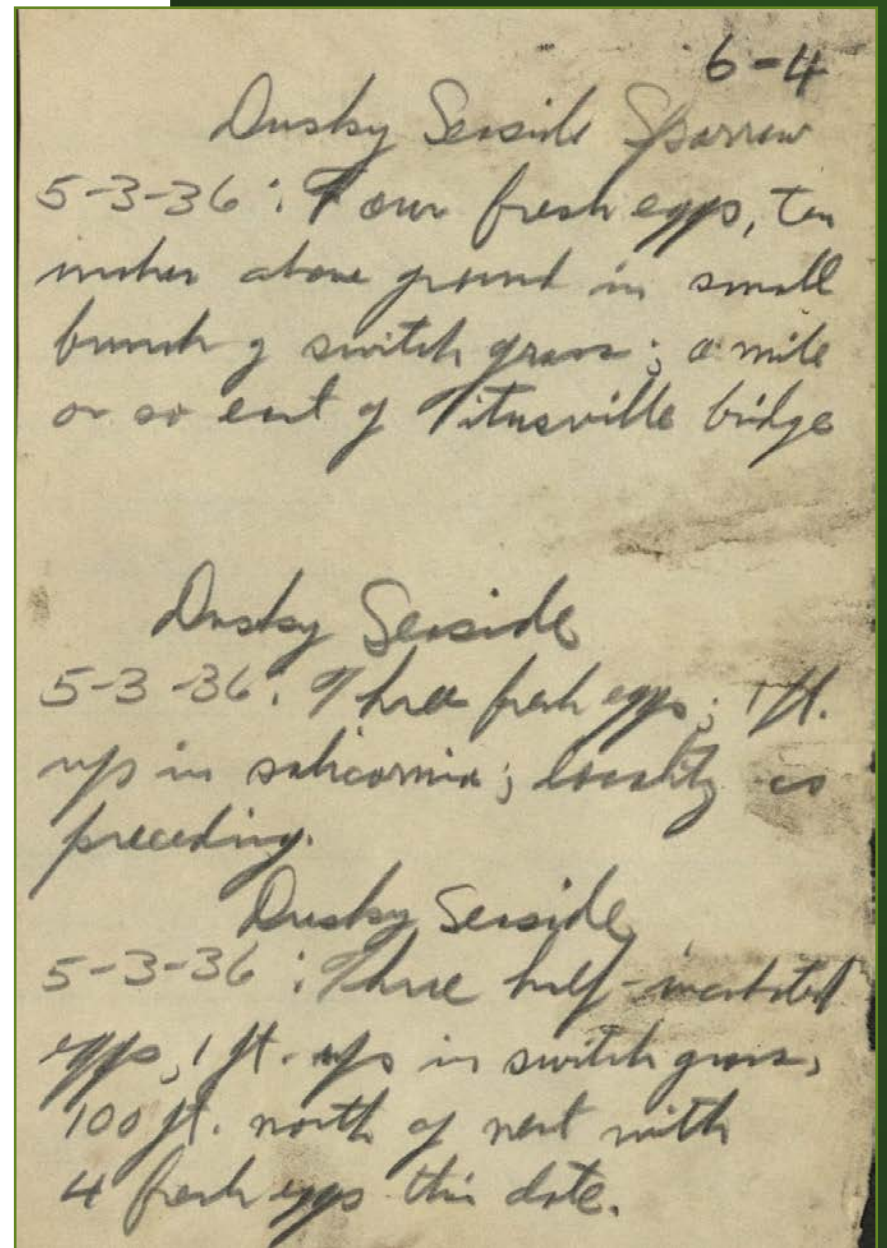 6-4
Dusky Seaside Sparrow
5-3-36: Four fresh eggs, ten
inches above ground in small
bunch of switch grass; a mile
or so east of Titusville bridge
Dusky Seaside
5-3-36: Three fresh eggs; 1 ft.
up in salicornia; locality as
preceding.
Dusky Seaside
5-3-36: Three half-incubated
eggs, 1 ft. up in switch grass,
100 ft. north of nest with
4 fresh eggs this date.